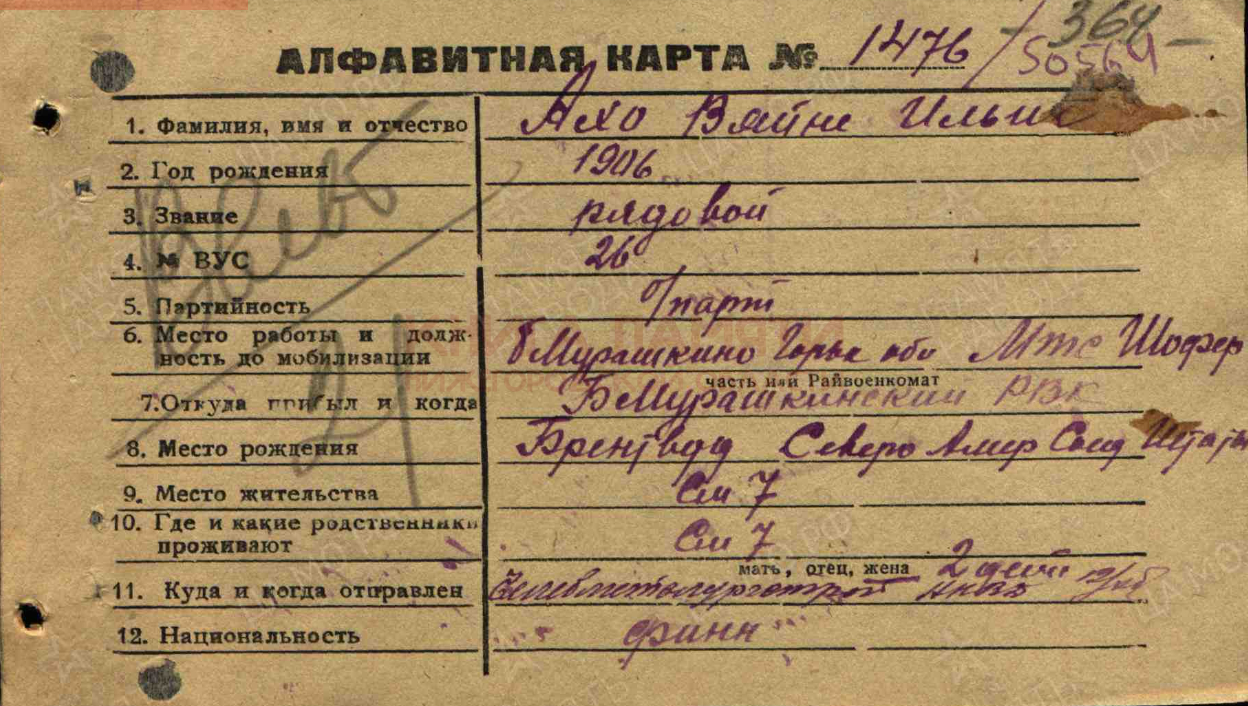 364
АЛФАВИТНАЯ КАРТА № 1476 / 50564
1. Фамилия, имя и отчество Ахо Вяйне Ильич
2. Год рождения 1906
3. Звание рядовой
4. № ВУС 26
5. Партийность б/парт
6. Место работы и долж-
ность до мобилизации б Мурашкино Горьк обл Мтс Шофер
часть или Райвоенкомат
7. Откуда прибыл и когда БМурашкинский РВК
8. Место рождения Брентвуд Северо Амер Соед Штаты
9. Место жительства См 7
10. Где и какие родственники
проживают См 7
мать, отец, жена 2 детей
11. Куда и когда отправлен Челябметаллургстрой НКВД
12. Национальность финн
КНИГА ПАМЯТИ
НИЖЕГОРОДСКОЙ ОБЛАСТИ
ЦАМО РФ